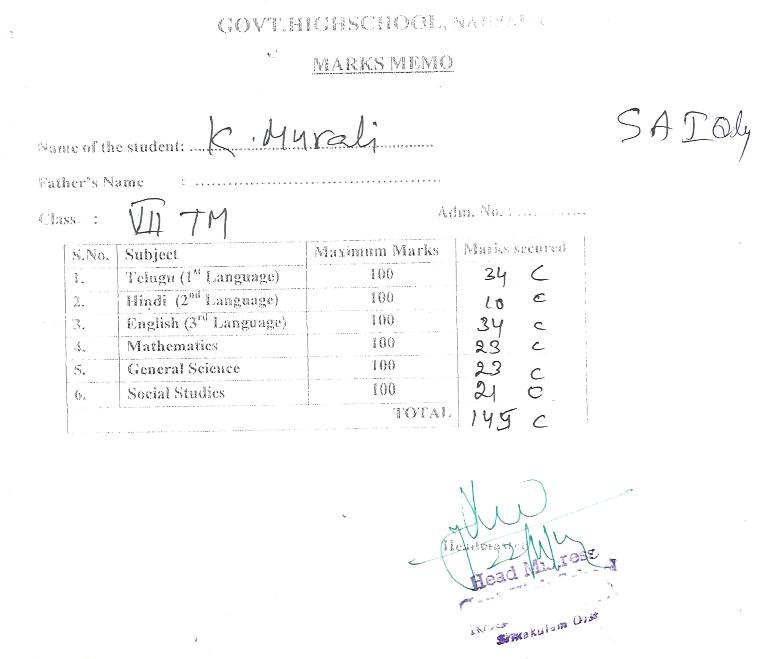 GOVT.HIGHSCHOOL,
MARKS MEMO
Name of the student: K. Murali
SAI
Father's Name :
Class : VII TM Adm. No. :
S.No. Subject Maximum Marks Marks secured
1. Telugu (1st Language) 100 34 C
2. Hindi (2nd Language) 100 10 C
3. English (3rd Language) 100 34 C
4. Mathematics 100 23 C
5. General Science 100 23 C
6. Social Studies 100 21 C
TOTAL 145 C
Head Mistress
Srikakulam Dist